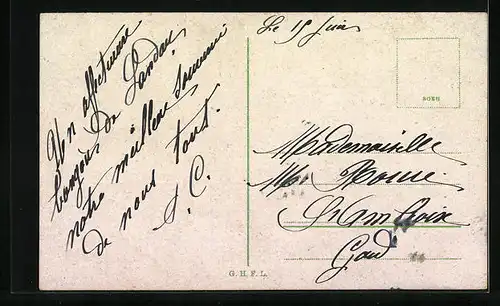 Le 15 Juin
Un affectueux
bonjour de Landau,
notre meilleur souvenir
de nous tous.
A. C.
Mademoiselle
St Ambroix
Gard
G. H. F. L.